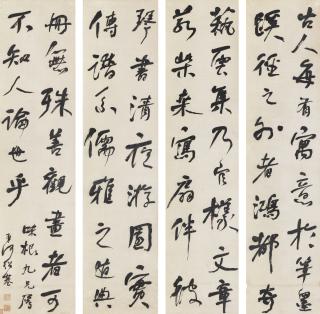 古人每有寓意於筆墨
蹊徑之外者鴻都奇
藝雲集乃官樣文章
若柴桑寫扇伴彼
琴書清夜游園實
傳譜系儒雅之遺興
無殊善觀畫者可
不知人論世乎
九兄屬